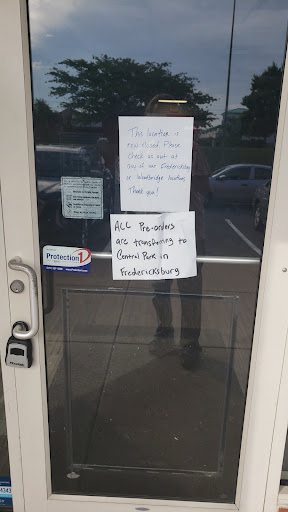 This location is
now closed. Please
check us out at
any of our Fredericksburg
or Woodbridge locations
Thank you!
ALL Pre-orders
are transferring to
Central Park in
Fredericksburg
Protection 1
4343